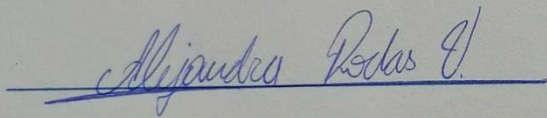 Alejandra Rodas V.